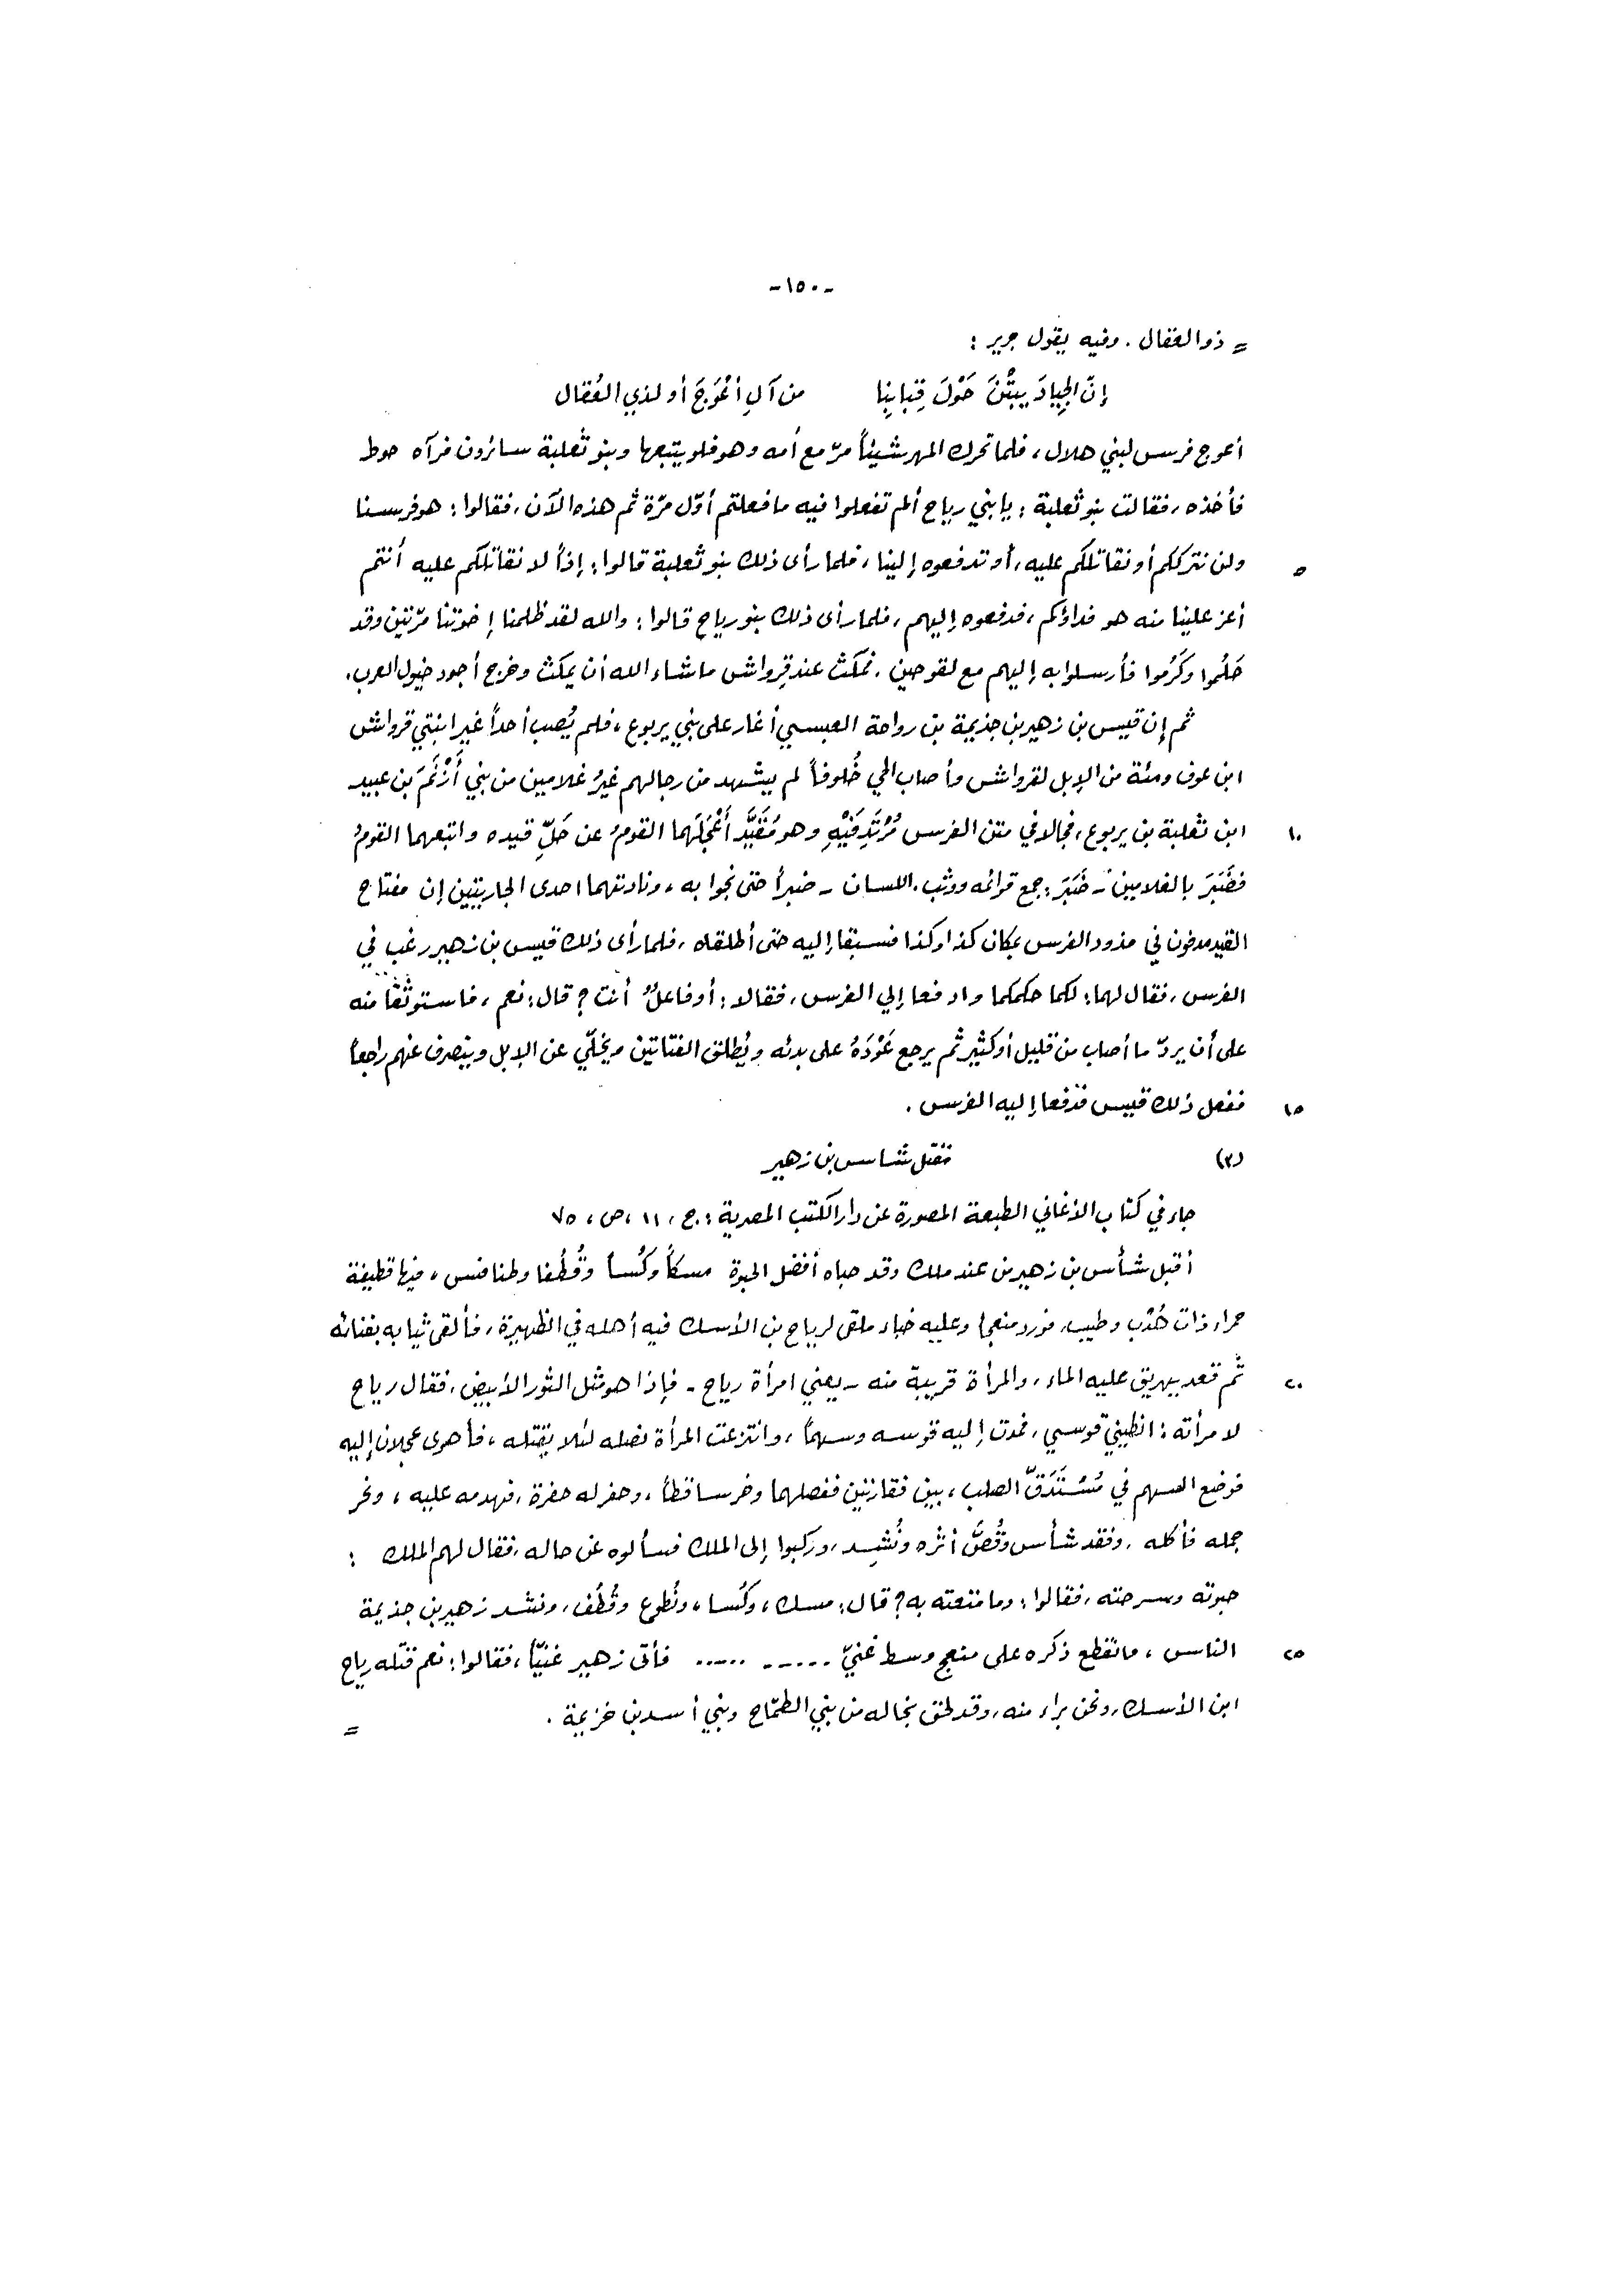 -١٥٠-
= ذو العقال . وفيه يقول جرير :
إنّ الجِيادَ يبتْنَ حَوْلَ قِبابِنِا من آلِ أعْوَجَ أو لذي العُقال
أعوج فرس لبني هلال ، فلما تحرك المهر شيئاً مرّ مع أمه وهو فلو يتبعها وبنو ثعلبة سائرون فرآه حوط
فأخذه ، فقالت بنو ثعلبة : يا بني رياح ألم تفعلوا فيه ما فعلتم أوّل مرّة ثم هذه الآن ، فقالوا : هو فرسنا
ولن نترككم أو نقاتلكم عليه ، أو تدفعوه إلينا ، فلما رأى ذلك بنو ثعلبة قالوا : إذاً لا نقاتلكم عليه أنتم
٥
أعز علينا منه هو فداؤكم ، فدفعوه إليهم ، فلما رأى ذلك بنو رياح قالوا : والله لقد ظلمنا إخوتنا مرّتين وقد
حَلُموا وكَرُموا فأرسلوا به إليهم مع لقوحين . فمكث عند قِرواش ما شاء الله أن يمكث وخرج أجود خيول العرب .
ثم إن قيس بن زهير بن جذيمة بن رواحة العبسي أغار على بني يربوع ، فلم يُصب أحداً غير ابنتي قرواش
ابن عوف ومئة من الإبل لقرواش وأصاب الحي خُلوفاً لم يشهد من رجالهم غيرُ غلامين من بني أَزْنَمَ بن عبيد
ابن ثعلبة بن يربوع ، فجالا في متن الفرس مُرْتَدِفَيْهِ وهو مُقَيَّد أَعْجَلَهما القومُ عن حَلِّ قيده واتبعهما القومُ
١٠
فضَبَرَ بالغلامين - ضَبَرَ : جمع قوائمه ووثب . اللسان - ضبراً حتى نجوا به ، ونادتهما احدى الجاريتين إن مفتاح
القيد مدفون في مذود الفرس بمكان كذا وكذا فسبقا إليه حتى أطلقاه ، فلما رأى ذلك قيس بن زهير رغب في
الفرس ، فقال لهما : لكما حكمكما وادفعا إلي الفرس ، فقالا : أو فاعلٌ أنت ؟ قال : نعم ، فاستوثقا منه
على أن يردّ ما أصاب من قليل أو كثير ثم يرجع عَوْدَهُ على بدئه ويُطلق الفتاتين ويخلّي عن الإبل وينصرف عنهم راجعاً
ففعل ذلك قيس فدفعا إليه الفرس .
١٥
(٢) مقتل شاس بن زهير
جاء في كتاب الأغاني الطبعة المصورة عن دار الكتب المصرية : ج ، ١١ ، ص ، ٧٥
أقبل شأس بن زهير من عند ملك وقد حباه أفضل الحبوة مسكاً وكُساً وقُطُفا وطنافس ، فيها قطيفة
حمراء ذات هُدْب وطيب ، فورد منعجا وعليه خباء ملقى لرياح بن الأسك فيه أهله في الظهيرة ، فألقى ثيابه بفنائه
ثم قعد يهريق عليه الماء ، والمرأة قريبة منه - يعني امرأة رياح - فإذا هو مثل الثور الأبيض ، فقال رياح
٢٠
لامرأته : انطيني قوسي ، فمدت إليه قوسه وسهماً ، وانتزعت المرأة نصله لئلا يقتله ، فأهوى عجلان إليه
فوضع السهم في مُسْتَدَقّ الصلب ، بين فقارتين ففصلهما وخر ساقطاً ، وحفر له حفرة ، فهدمه عليه ، ونحر
جمله فأكله . وفقد شأس وقُصَّ أثره ونُشِد ، وركبوا إلى الملك فسألوه عن حاله ، فقال لهم الملك :
حبوته وسرحته ، فقالوا : وما متعته به ؟ قال : مسك ، وكُسا ، ونُطوع وقُطُف ، ونشد زهير بن جذيمة
الناس ، فانقطع ذكره على منعج وسط غنيّ ............ فأتى زهير غنيّاً ، فقالوا : نعم قتله رياح
٢٥
ابن الأسك ، ونحن براء منه ، وقد لحق بخاله من بني الطمّاح وبني أسد بن خزيمة .
=